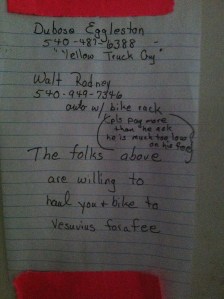 Dubose Eggleston
540-487-6388 -
"Yellow Truck Guy"
Walt Rodney
540-949-7346
auto w/ bike rack
pls pay more
than he ask
he is much too low
on his fee
The folks above
are willing to
haul you + bike to
Vesuvius for a fee